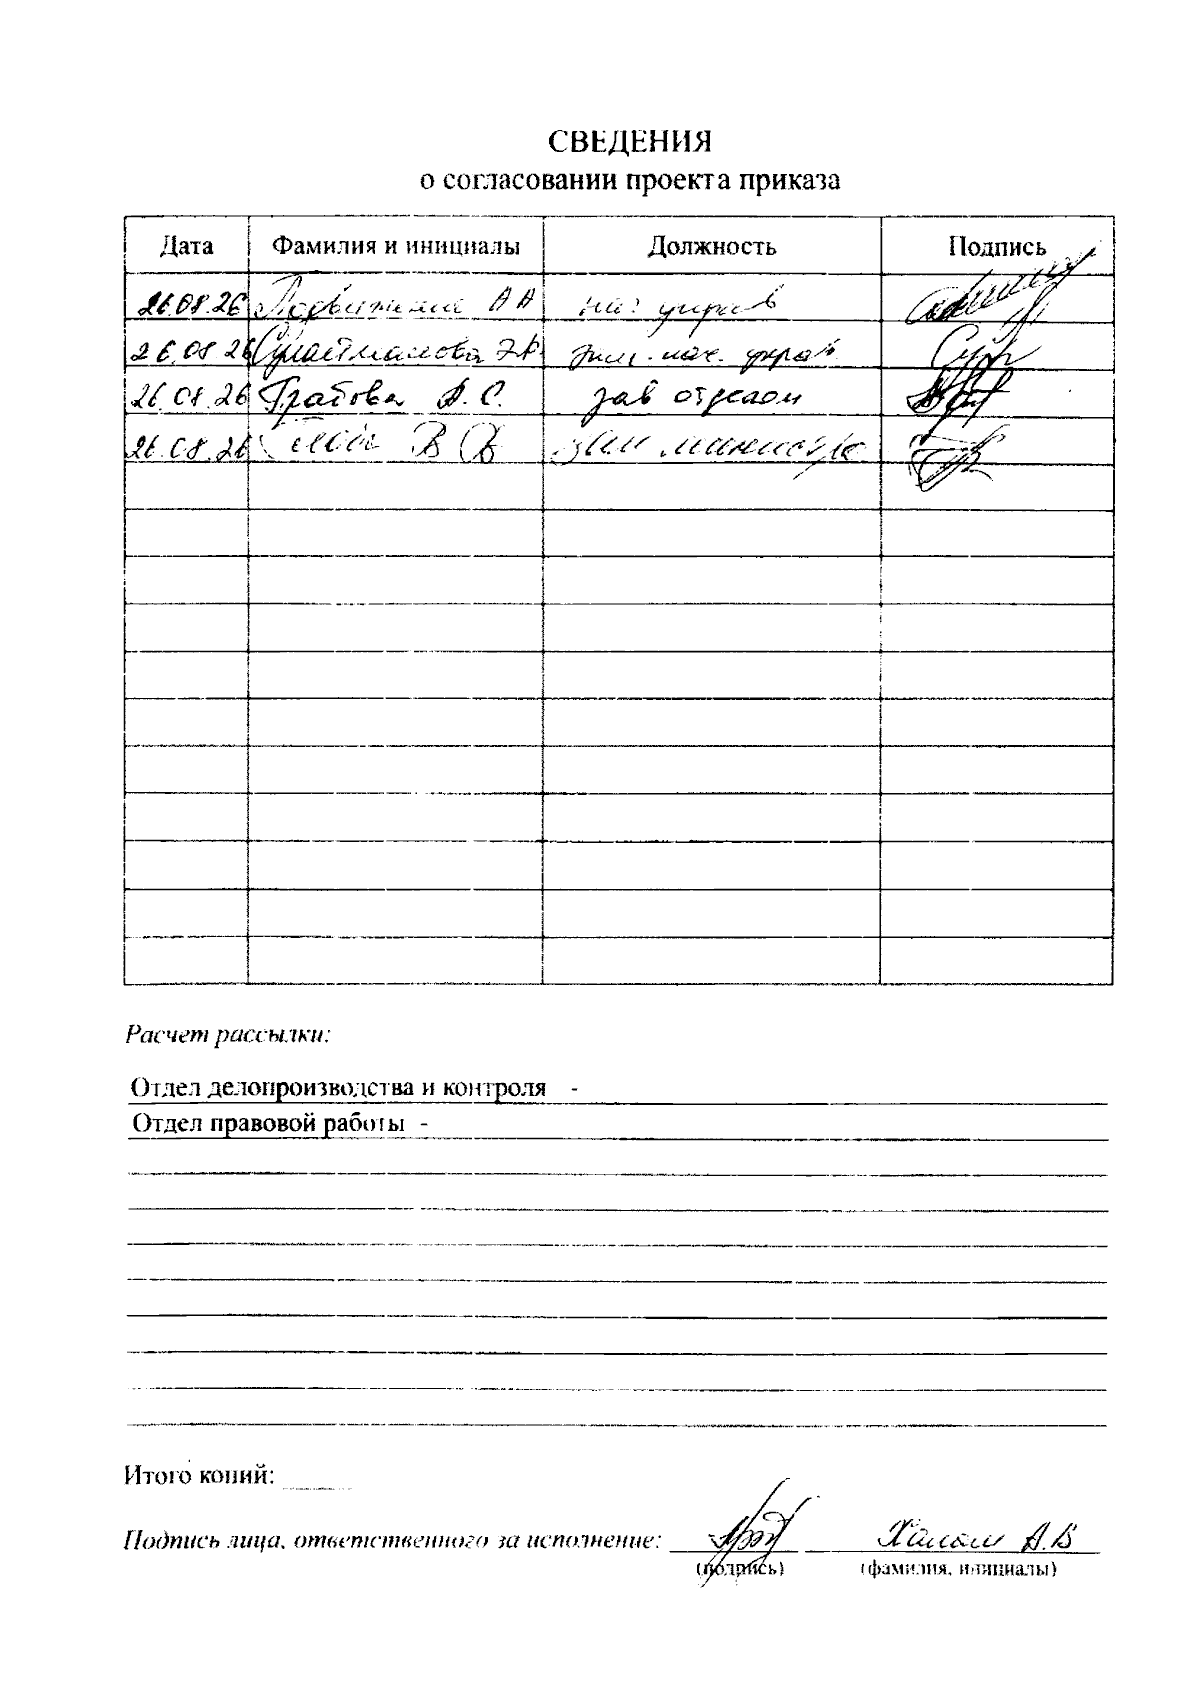 СВЕДЕНИЯ
о согласовании проекта приказа
Дата Фамилия и инициалы Должность Подпись
26.08.26 А А нач управ
26.08.26 зам. нач. управ
26.08.26 Гратова А. С. зав отделом
26.08.26 В В зам министра
Расчет рассылки:
Отдел делопроизводства и контроля -
Отдел правовой работы -
Итого копий:
Подпись лица, ответственного за исполнение: А.В
(подпись) (фамилия, инициалы)